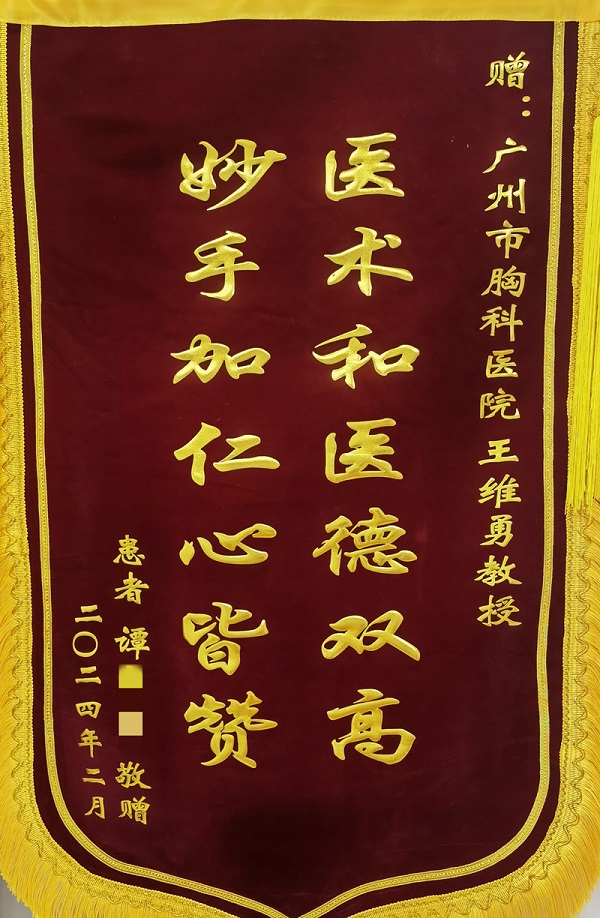 赠：广州市胸科医院 王维勇教授
医术和医德双高
妙手加仁心皆赞
患者 谭 敬赠
二〇二四年二月